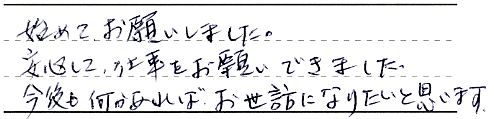 始めて、お願いしました。
安心して、仕事をお願いできました。
今後も何かあれば、お世話になりたいと思います。